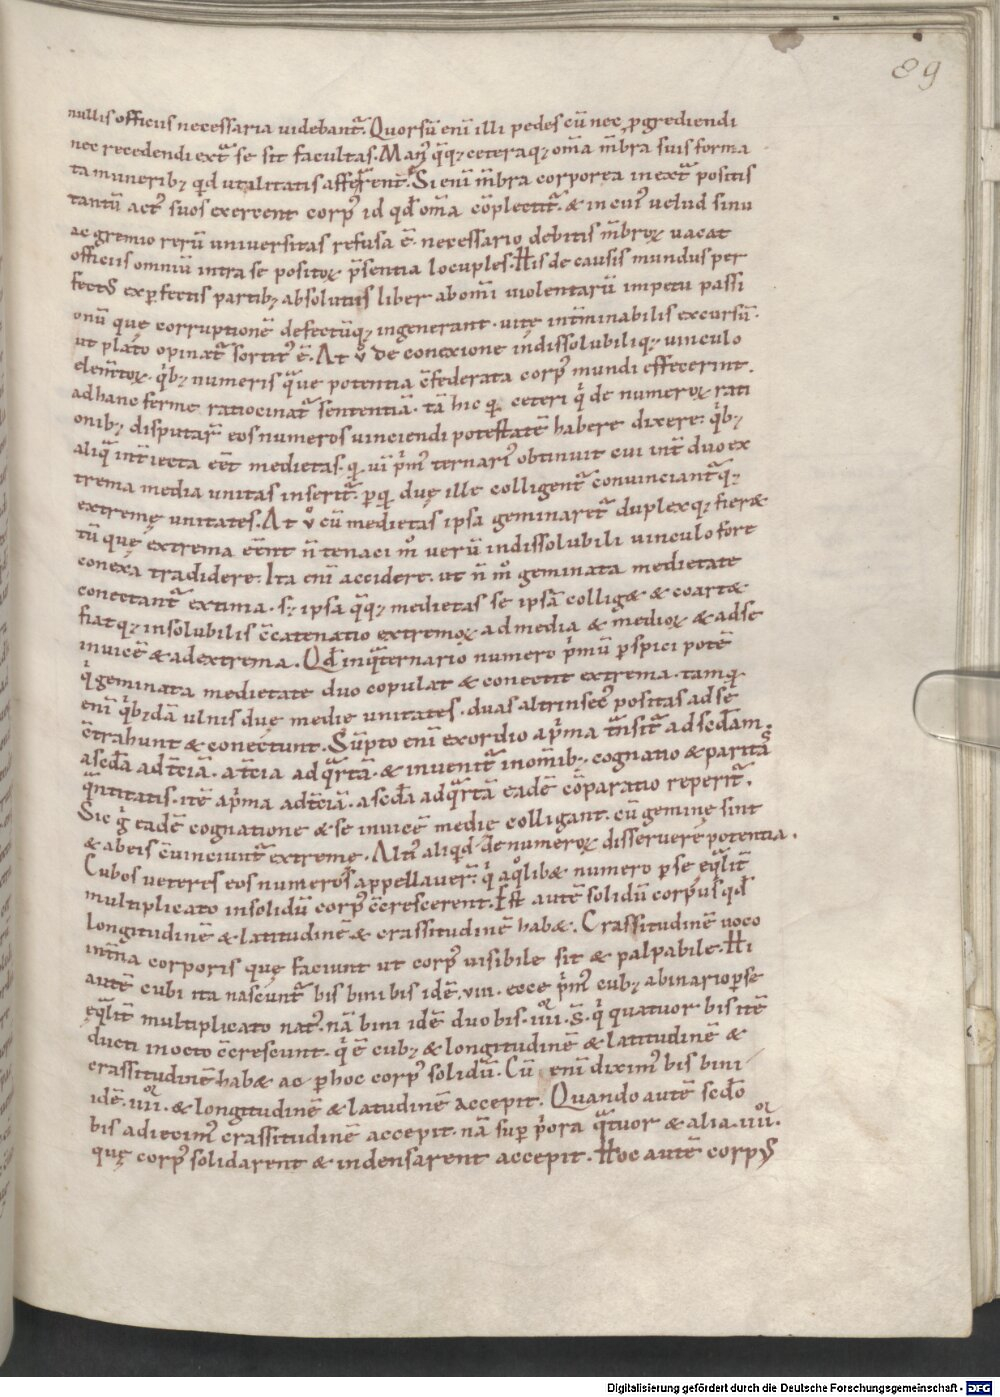 89
nullis officiis necessaria uidebant᷑. Quorsū eni illi pedes cū nec ꝓgrediendi
nec recedendi ext᷑ se sit facultas. Man᷒ q̄q; ceteraq; om̄a m̄bra suis forma
ta muneribꝫ qd utilitatis afferrent. Si eni m̄bra corporea in ext᷑ positis
tantū act᷒ suos exercent corp᷒ id qd̄ om̄a cōplectit᷑. & in cui᷒ uelud sinu
ac gremio rerū uniuersitas refusa ē. necessario debitis m̄broꝝ uacat
officiis omniū intra se positoꝝ p̄sentia locuples. His de causis mundus per
fectꝰ ex ꝑfectis partibꝫ absolutus liber ab om̄i uiolentarū impetu passi
onū quę corruptionē defectūqꝫ ingenerant. uitę int̄minabilis excursū.
ut plato opinat᷑ sortit᷒ ē. At u͛ de conexione indissolubiliqꝫ uinculo
elem̄toꝝ. qͥbꝫ numeris q᷑ue potentia c̄federata corp᷒ mundi effecerint.
ad hanc ferme ratiocinat᷑ sententiā. tā hic q̄ ceteri qͥ de numeroꝝ rati
onibꝫ disputar̄ eos numeros uinciendi potestatē habere dixere. qͥbꝫ
aliq᷑ int̄iecta eēt medietas. q̄ uī pͥm᷒ ternari᷒ obtinuit cui int̄ duo ex
trema media unitas inserit᷑. ꝑ q̄ duę ille colligent᷑ conuinciant᷑qꝫ
extremę unitates. At u͛ cū medietas ipsa geminaret᷑ duplexqꝫ fier&
tū quę extrema eēnt n̄ tenaci mͦ uerū indissolubili uinculo fore
conexa tradidere. Ita eni accidere. ut n̄ mͦ geminata medietate
conectant᷑ extima. sꝫ ipsa q̄qꝫ medietas se ipsā collig& & coart&
fiatqꝫ insolubilis c̄catenatio extremoꝝ ad media & medioꝝ & ad se
inuicē & ad extrema. Qd̄ in q᷑ternario numero pͥmū ꝑspici potē
qͥ geminata medietate duo copulat & conectit extrema. tamq̄
eni qͥbꝫdā ulnis duę medię unitates. duas altrinsec᷒ positas ad sē
c̄trahunt & conectunt. Sūpto eni exordio a pͥma t᷑nsit᷑ ad scd̄am.
a scd̄a ad tc̄iā. a tc̄ia ad q᷑rtā. & inuenit᷑ in om̄ibꝫ. cognatio & paritas
q᷑ntitatis. itē a pͥma ad tc̄iā. a scd̄a ad q᷑rtā eadē cōparatio reperit᷑.
Sic g͛ eadē cognatione & se inuicē medię colligant. cū geminę sint
& ab eis c̄uinciunt᷑ extremę. Alti᷒ aliqd de numeroꝝ disseruere potentia.
Cubos ueteres eos numeros appellauer̄. qͥ a qͦlib& numero ꝑ se eq᷑lit̄
multiplicato in solidū corp᷒ c̄crescerent. Est autē solidū corpus qd̄
longitudinē & latitudinē & crassitudinē hab&. Crassitudinē uoco
int̄na corporis quę faciunt ut corp᷒ uisibile sit & palpabile. Hi
autē cubi ita nascunt᷑ bis bini bis idē .viii. ecce pͥm᷒ cubꝫ a binario ꝑ se
eq᷑lit̄ multiplicato nat᷒. nā bini idē duo bis .iiii. s̄. qͥ quatuor bis itē
ducti in octo c̄crescunt. qͥ ē cubꝫ & longitudinē & latitudinē &
crassitudinē hab& ac ꝑ hoc corp᷒ solidū. Cū eni dixim᷒ bis bini
idē .iiii. & longitudinē & latudinē accepit. Quando autē scd̄o
bis adiecim᷒ crassitudinē accepit. nā suꝑ pͥora q᷑tuor & alia .iiii.
quę corp᷒ solidarent & indensarent accepit. Hoc autē corpꝰ
Digitalisierung gefördert durch die Deutsche Forschungsgemeinschaft - DFG